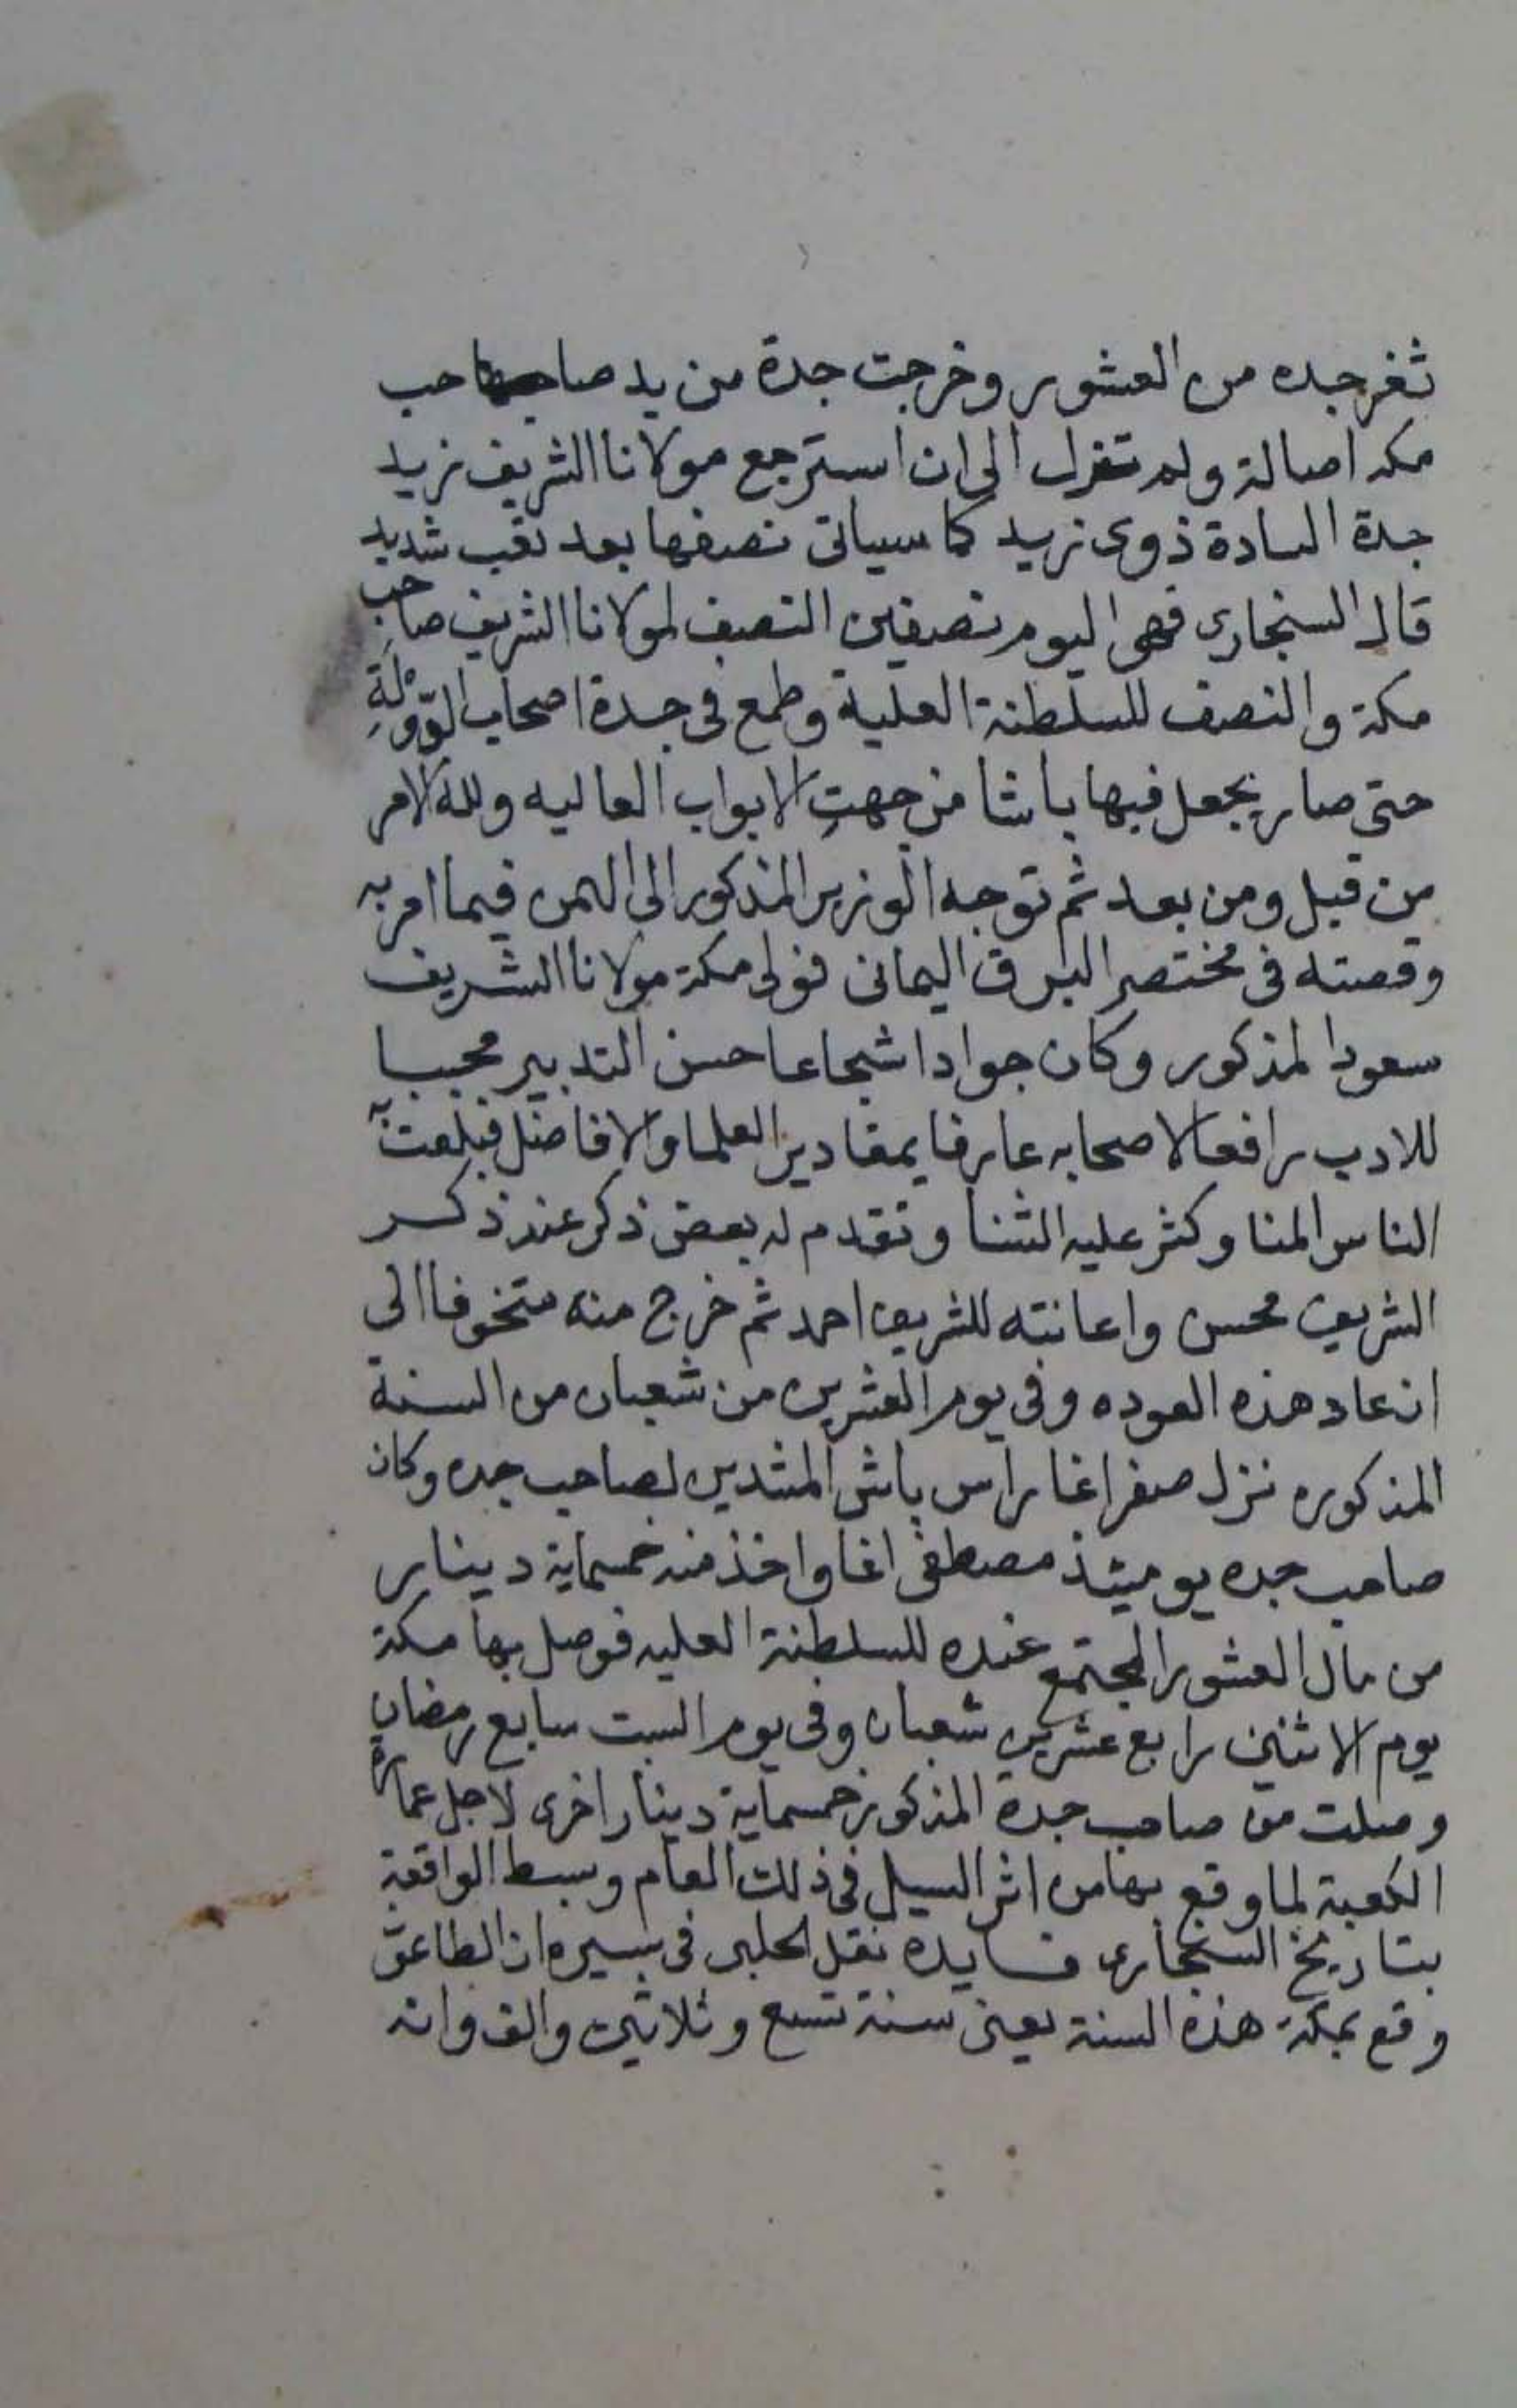 ثغر جده من العشور وخرجت جدة من يد صاحب
مكه اصالة ولم تزل الى ان استرجع مولانا الشريف زيد
جدة السادة ذوى زيد كما سياتى نصفها بعد تعب شديد
قال السنجارى فهى اليوم نصفين النصف لمولانا الشريف صاحب
مكة والنصف للسلطنة العلية وطمع فى جدة اصحاب الدولة
حتى صار يجعل فيها باشا من جهت الابواب العاليه ولله الامر
من قبل ومن بعد ثم توجه الوزير المذكور الى اليمن فيما امر به
وقصته فى مختصر البرق اليمانى فولى مكة مولانا الشريف
سعود المذكور وكان جوادا شجاعا حسن التدبير محببا
للادب رافعا لاصحابه عارفا بمقادير العلما والافاضل فبلغت به
الناس المنا وكثر عليه الثنا وتقدم له بعض ذكر عند ذكر
الشريف محسن واعانته للشريف احمد ثم خرج منه متخوفا الى
ان عاد هذه العوده وفى يوم العشرين من شعبان من السنة
المذكوره نزل صفر اغا راس باش المشدين لصاحب جده وكان
صاحب جده يوميئذ مصطفى اغا واخذ منه خمسماية دينار
من مال العشور المجتمع عنده للسلطنة العليه فوصل بها مكة
يوم الاثنين رابع عشرين شعبان وفى يوم السبت سابع رمضان
وصلت من صاحب جدة المذكور خمسماية دينار اخرى لاجل عمارة
الكعبة لما وقع بها من اثر السيل فى ذلك العام وبسط الواقعة
بتاريخ السنجارى فايده نقل الحلبى فى سيره ان الطاعون
وقع بمكة هذه السنة يعنى سنة تسع وثلاثين والف وانه